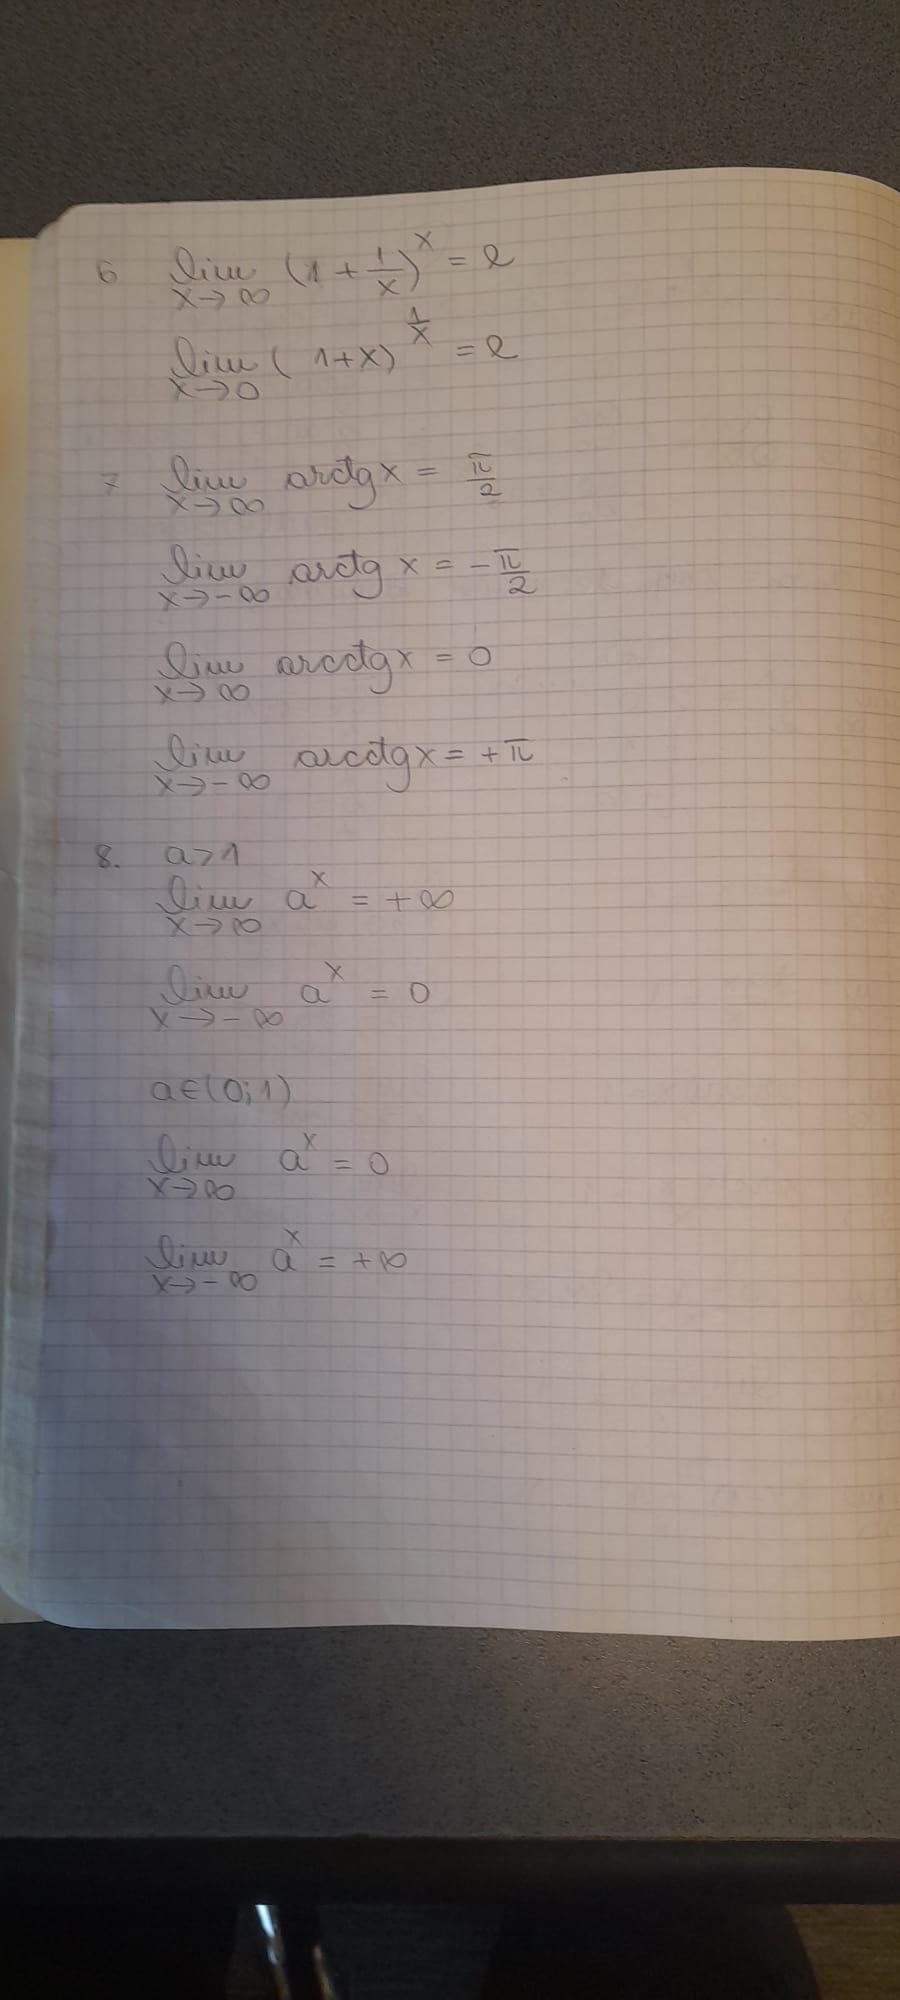 6 lim x→∞ (1 + 1/x)^x = e
lim x→0 (1+x)^(1/x) = e
7 lim x→∞ arctg x = π/2
lim x→-∞ arctg x = -π/2
lim x→∞ arcctg x = 0
lim x→-∞ arcctg x = +π
8. a>1
lim x→∞ a^x = +∞
lim x→-∞ a^x = 0
a∈(0;1)
lim x→∞ a^x = 0
lim x→-∞ a^x = +∞